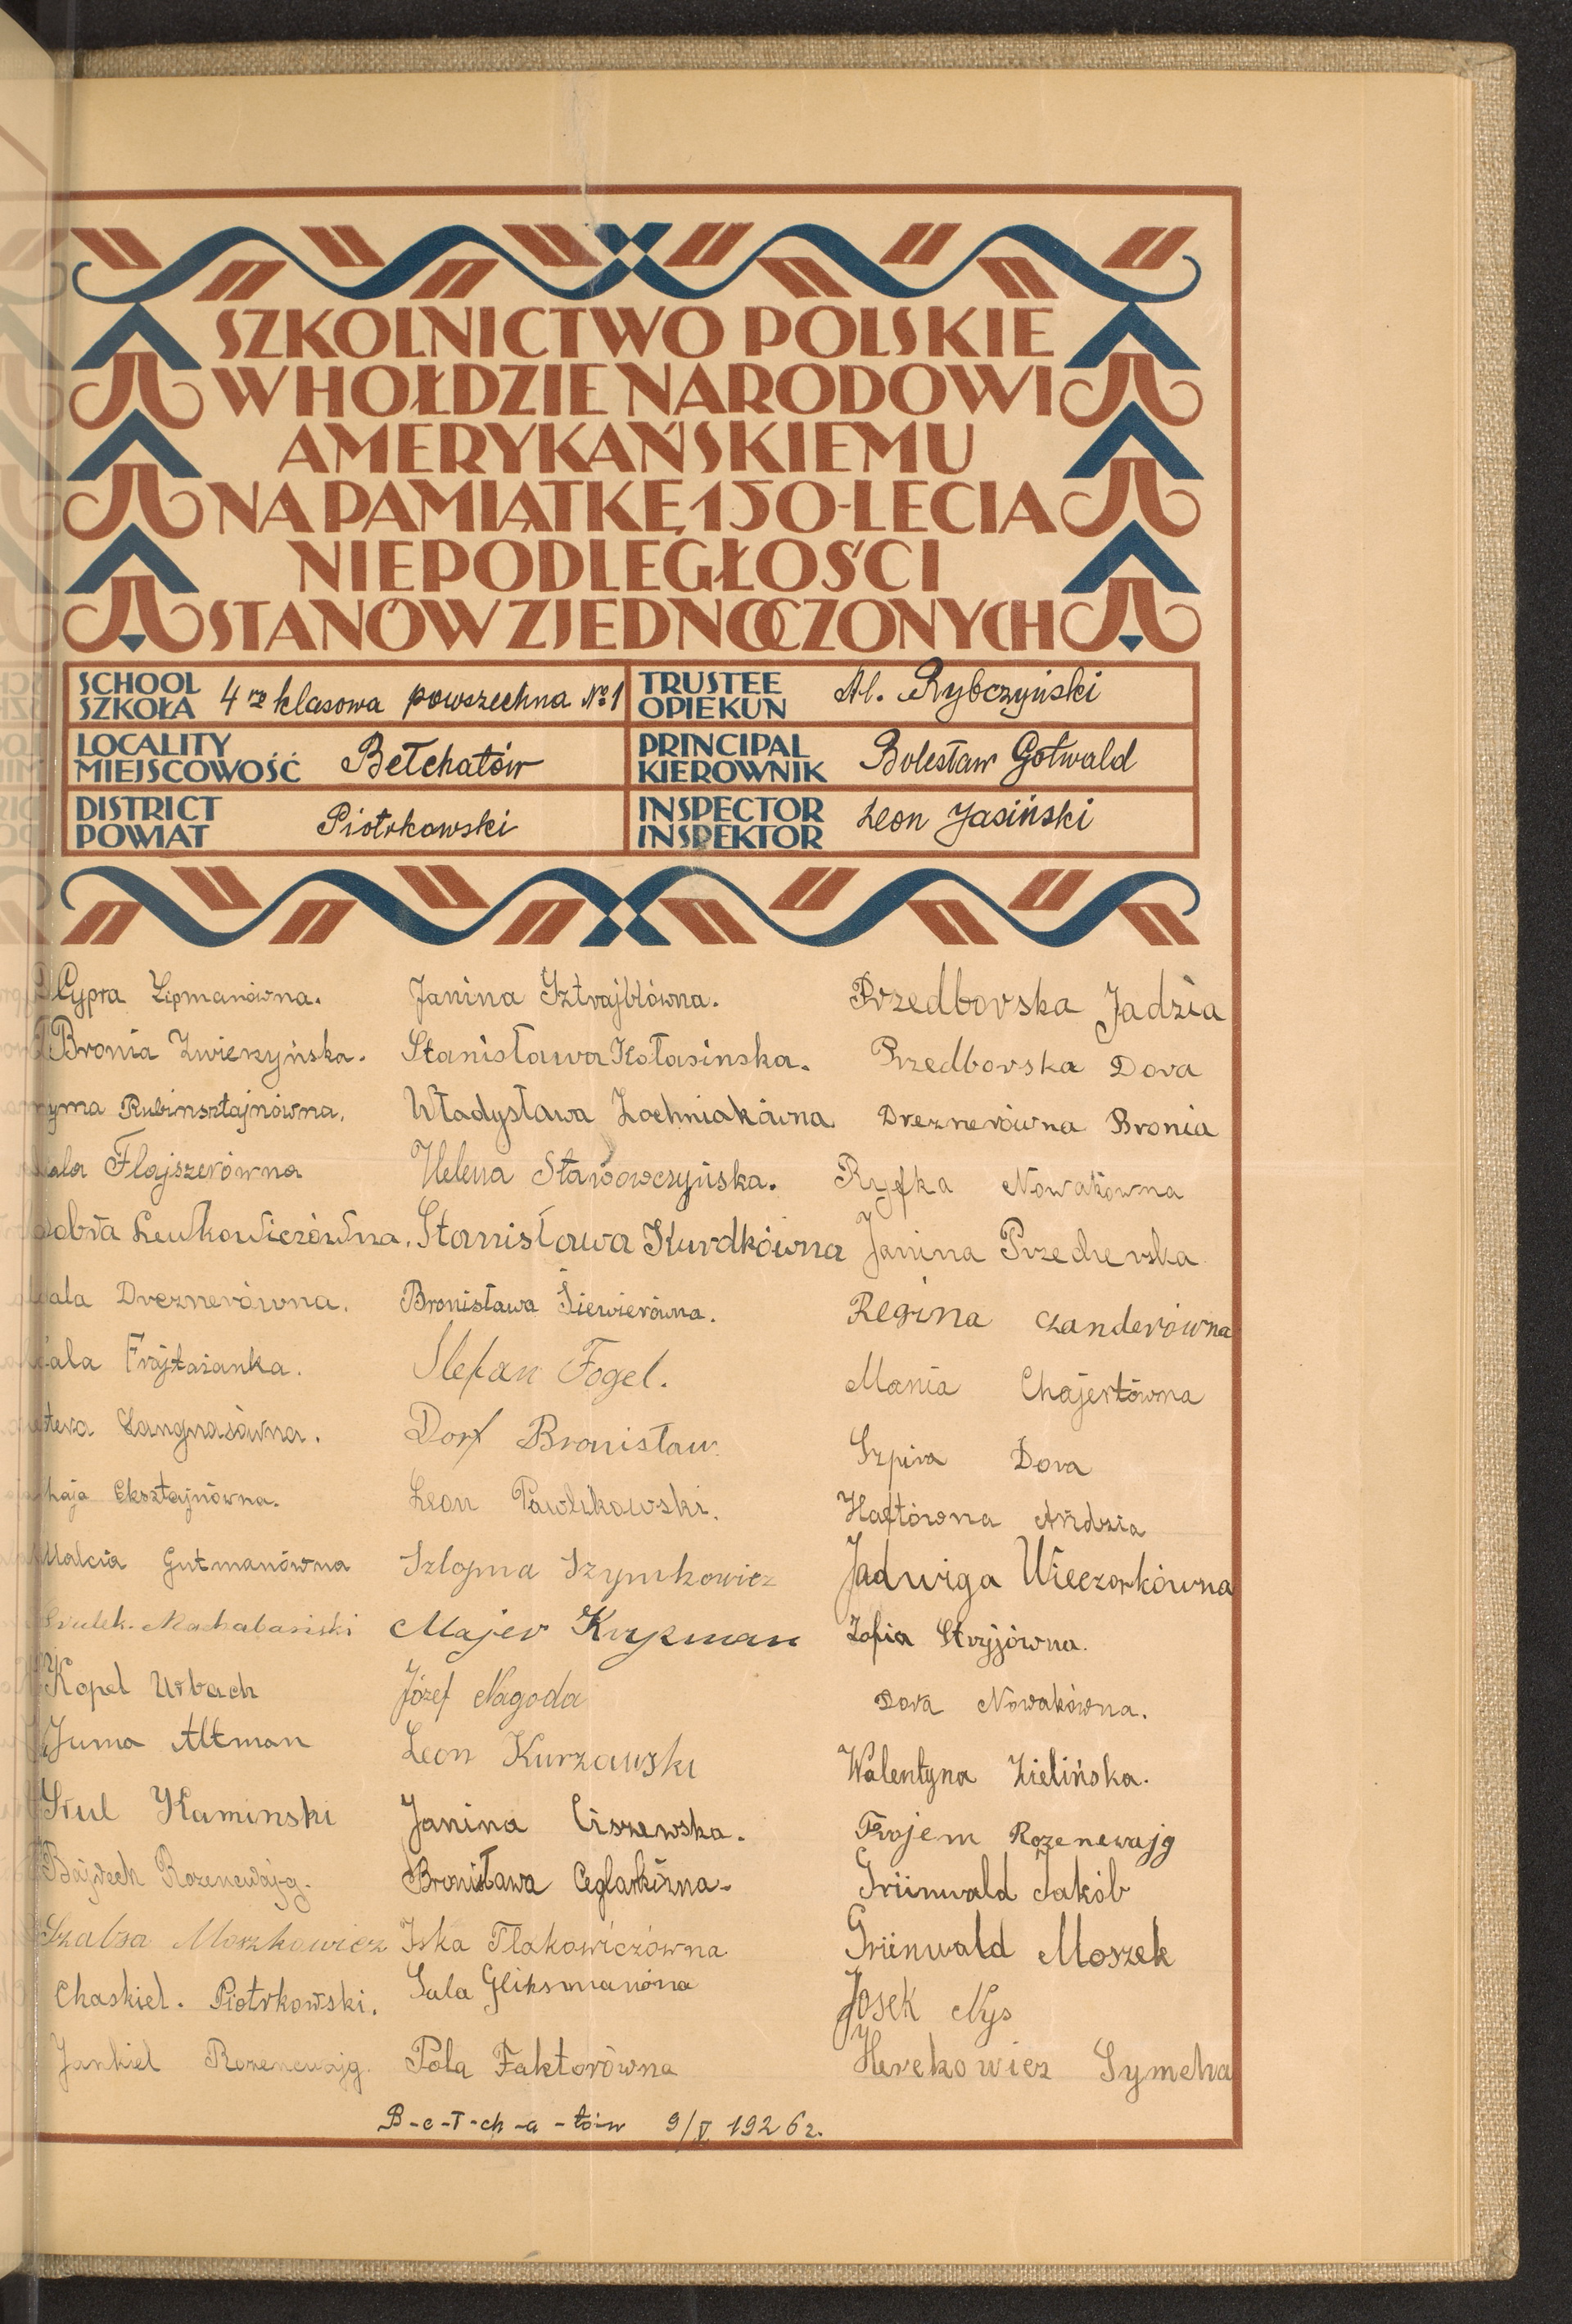 SZKOLNICTWO POLSKIE
W HOŁDZIE NARODOWI
AMERYKAŃSKIEMU
NA PAMIĄTKĘ 150-LECIA
NIEPODLEGŁOŚCI
STANÓW ZJEDNOCZONYCH
SCHOOL
SZKOŁA 4 rz klasowa powszechna № 1
TRUSTEE
OPIEKUN Al. Rybczyński
LOCALITY
MIEJSCOWOŚĆ Bełchatów
PRINCIPAL
KIEROWNIK Bolesław Gotwald
DISTRICT
POWIAT Piotrkowski
INSPECTOR
INSPEKTOR Leon Jasiński
Cypra Lipmanówna.
Bronia Zwierzyńska.
Rubinsztajnówna.
Flajszerówna
Lewkowiczówna.
Dreznerówna.
Frajtażanka.
Langnasówna.
Eksztajnówna.
Malcia Gutmanówna
Srulek. Machabański
Kopel Urbach
Juma Altman
Srul Kaminski
Rozenewajg.
Szabsa Moszkowicz
Chaskiel. Piotrkowski.
Jankiel Rozenewajg.
Janina Sztrajblówna.
Stanisława Kołasinska.
Władysława Zochniakówna
Helena Stawowczyńska.
Stanisława Kurdkówna
Bronisława Siewierówna.
Stefan Fogel.
Dorf Bronisław
Leon Pawlikowski.
Szlojma Szymkowicz
Majer Krykman
Józef Nagoda
Leon Kurzawski
Janina Ciszewska.
Bronisława Ceglarkówna.
Iska Flakowiczówna
Sala Gliksmanóna
Pola Faktorówna
Przedborska Jadzia
Przedborska Dora
Dreznerówna Bronia
Ryfka Nowakówna
Janina Przecherska
Regina Czanderówna
Mania Chajertówna
Szpira Dora
Haftówna Andzia
Jadwiga Wieczorkówna
Zofia Stryjówna.
Dora Nowakówna.
Walentyna Zielińska.
Frojem Rozenewajg
Grünwald Jakób
Grünwald Moszek
Josek Nys
Herckowicz Symcha
B-e-ł-ch-a-tów 9/V 1926 r.